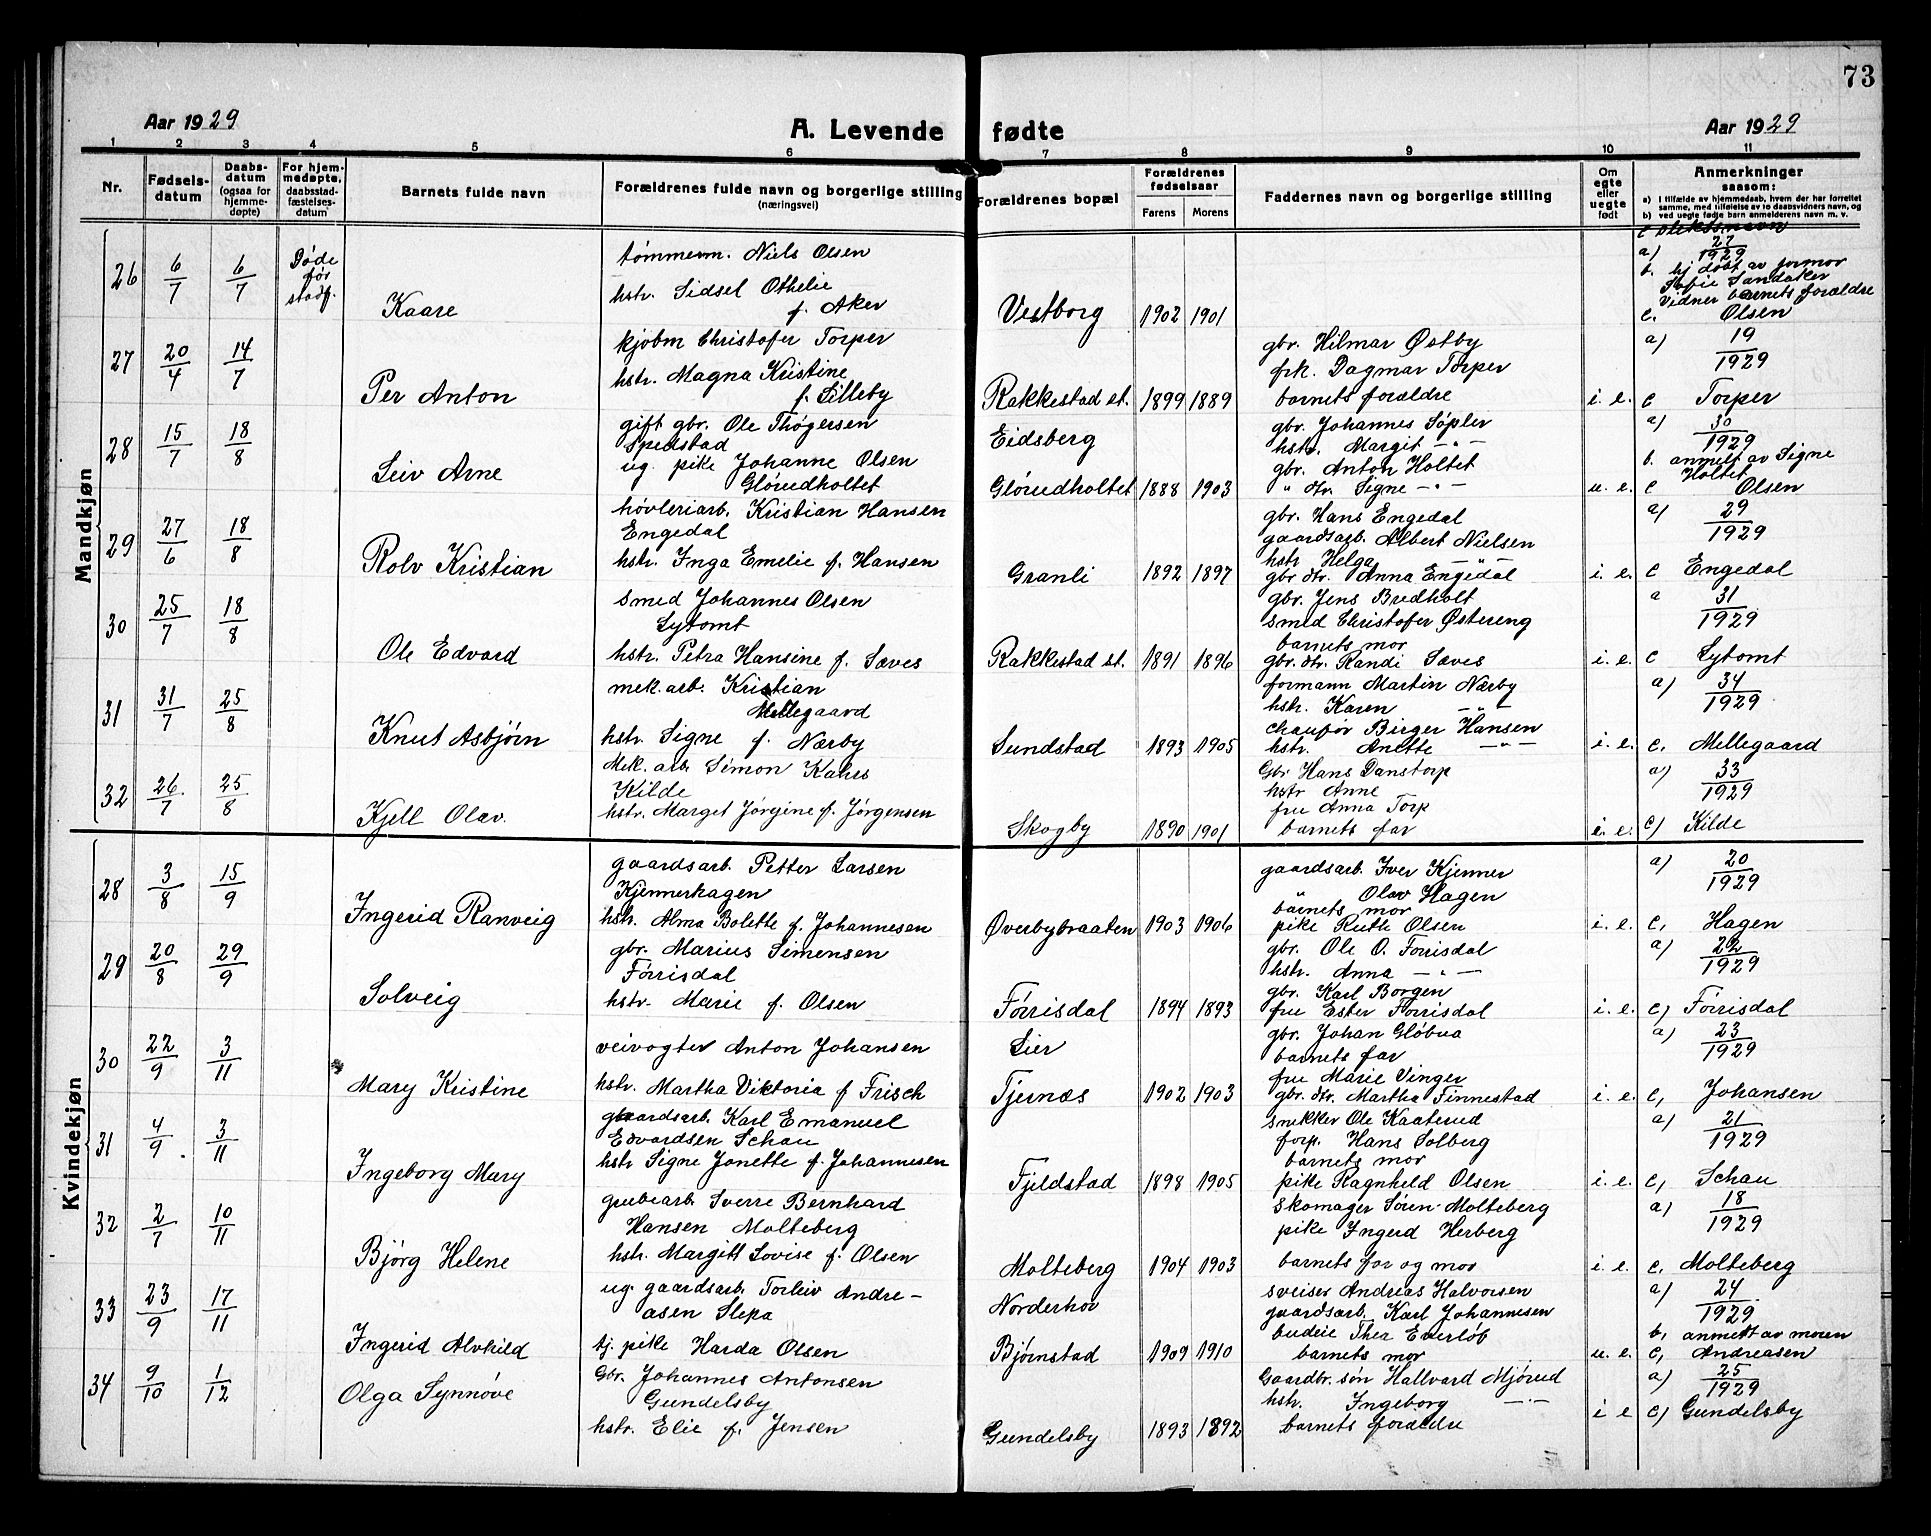 73
Aar 1929
A. Levende fødte
Aar 1929
1 2 3 4 5 6 7 8 9 10 11
Nr.
Fødsels-
datum
Daabs-
datum
(ogsaa for
hjemme-
døpte)
For hjem-
medøpte,
daabsstad-
fæstelses-
datum
Barnets fulde navn
Forældrenes fulde navn og borgerlige stilling
(næringsvei)
Forældrenes bopæl
Forældrenes
fødselsaar
Farens Morens
Faddernes navn og borgerlige stilling
Om
egte
eller
uegte
født
Anmerkninger
saasom:
a) I tilfælde av hjemmedaab, hvem der har forrettet
samme, med tilføielse av to daabsvidners navn, og
b) ved uegte fødte barn anmelderens navn m. v.
c slektsnavn
Mandkjøn
26 6/7 6/7
Døde
før
stadf.
Kaare
tømmerm. Niels Olsen
hstr. Sidsel Othelie
f. Aker
Vestborg 1902 1901
a) 27/1929
b. hj. døbt av formor
Sofie Sandaker
Vidner barnets forældre
c. Olsen
27 20/4 14/7
Per Anton
kjøbm Christofer Torper
hstr. Magna Kristine
f. Lilleby
Rakkestad st. 1899 1889
gbr. Hilmar Østby
frk. Dagmar Torper
barnets forældre
i. e.
a) 19/1929
c Torper
28 15/7 18/8
Leiv Arne
gift gbr. Ole Thøgersen
Sperstad
ug. pike Johanne Olsen
Glørudholtet
Eidsberg
Glørudholtet 1888 1903
gbr. Johannes Søpler
hstr. Margit -"-
gbr. Anton Holtet
" dtr. Signe -"-
u. e.
a) 30/1929
b. anmelt av Signe
Holtet
c Olsen
29 27/6 18/8
Rolv Kristian
høvleriarb. Kristian Hansen
Engedal
hstr. Inga Emelie f. Hansen
Granli 1892 1897
gbr. Hans Engedal
gaardsarb. Albert Nielsen
hstr Helga -"-
gbr. dtr. Anna Engedal
i. e.
a) 29/1929
c Engedal
30 25/7 18/8
Ole Edvard
smed Johannes Olsen
Lytomt
hstr. Petra Hansine f. Sæves
Rakkestad st. 1891 1896
gbr. Jens Bredholt
smed Christofer Østereng
barnets mor
gbr. dtr. Randi Sæves
i. e.
a 31/1929
c Lytomt
31 31/7 25/8
Knut Asbjørn
mek. arb. Kristian
Mellegaard
hstr. Signe f. Nærby
Sundstad 1893 1905
formann Martin Nærby
hstr. Karen -"-
chaufør Birger Hansen
hstr. Anette -"-
i. e.
a) 34/1929
c. Mellegaard
32 26/7 25/8
Kjell Olav.
Mek. arb. Simon
Kilde
hstr. Marget Jørgine f. Jørgensen
Skogby 1890 1901
Gbr Hans Danstorp
hstr Anne
fru Anna Torp
barnets far
i. e.
a) 33/1929
c) Kilde
Kvindekjøn
28 3/8 15/9
Ingerid Ranveig
gaardsarb. Petter Larsen
Kjennerhagen
hstr. Alma Bolette f. Johannesen
Øverbybraaten 1903 1906
gaardsarb. Iver Kjenner
" Olav Hagen
barnets mor
pike Ruth Olsen
i. e.
a) 20/1929
c, Hagen
29 20/8 29/9
Solveig
gbr. Marius Simensen
Førrisdal
hstr. Marie f. Olsen
Førrisdal 1894 1893
gbr. Ole O. Førrisdal
hstr. Anna -"-
gbr. Karl Borgen
fru Ester Førrisdal
i. e.
a) 22/1929
c) Førrisdal
30 22/9 3/11
Mary Kristine
veivogter Anton Johansen
hstr. Martha Viktoria f Frisch
Lier
Tjernæs 1902 1903
gbr. Johan Gløbua
barnets far
fru Marie Vinger
gbr. dtr. Martha Finnestad
i. e.
a) 23/1929
c, Johansen
31 4/9 3/11
Ingeborg Mary
gaardsarb. Karl Emanuel
Edvardsen Schau
hstr Signe Jonette f. Johannesen
Fjeldstad 1898 1905
snekker Ole Kaaterud
forp. Hans Solberg
barnets mor
pike Ragnheld Olsen
i. e.
a) 21/1929
c, Schau
32 2/7 10/11
Bjørg Helene
grubearb. Sverre Bernhard
Hansen Molteberg
hstr. Margitt Lovise f. Olsen
Molteberg 1904 1903
skomager Søren Molteberg
pike Ingerd Herberg
barnets far og mor
i. e.
a) 18/1929
c, Molteberg
33 23/9 17/11
Ingerid Alvhild
ug. gaardsarb. Torleiv Andre-
asen Slepa
tj. pike Harda Olsen
Norderhov
Bjørnstad 1909 1910
sveiser Andreas Halvorsen
gaardsarb. Karl Johannesen
budeie Thea Everløf
barnets mor
u. e.
a) 24/1929
b, anmelt av moren
c, Andreasen
34 9/10 1/12
Olga Synnøve
Gbr. Johannes Antonsen
Gundelsby
hstr. Elie f. Jensen
Gundelsby 1893 1892
Gaardbr. søn Hallvard Mjørud
hstr. Ingeborg -"-
barnets forældre
i e
a) 25/1929
c) Gundelsby